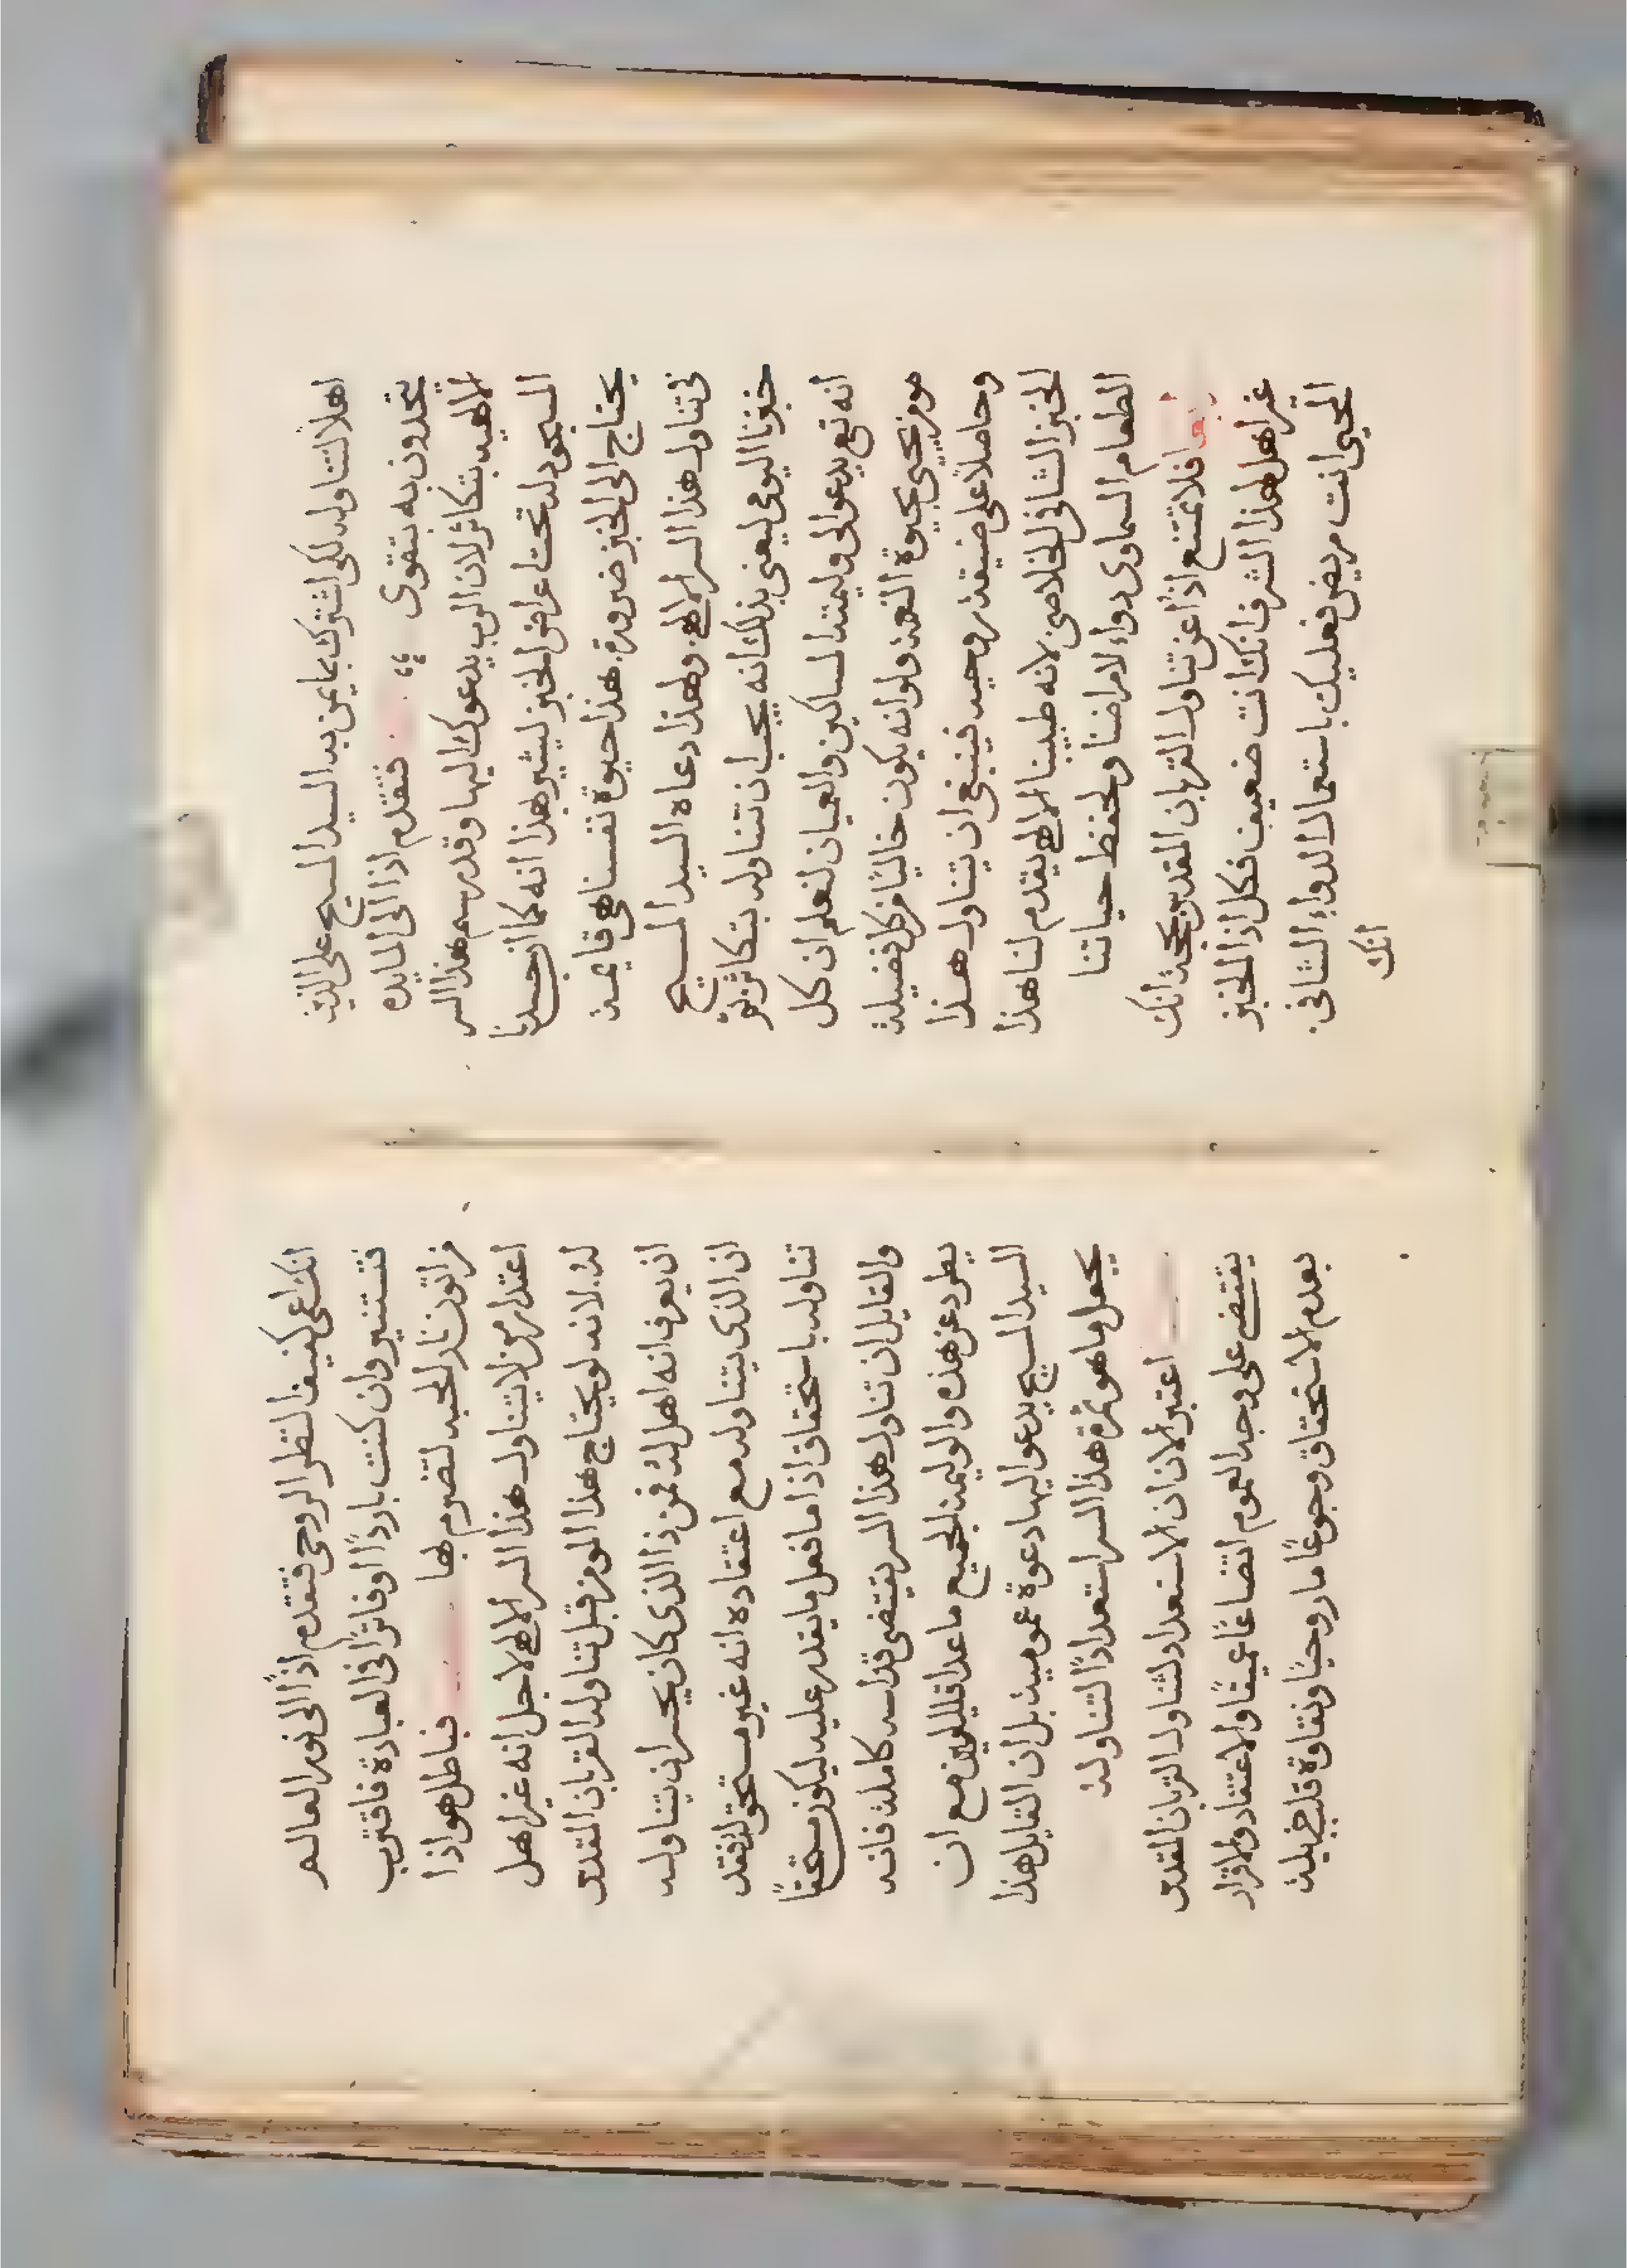 اهلاً لتناوله لكي اشترك بمايمن به السيد المسيح على الذين
يتحدون به بتقوى فتقدم اذا الى المايده
الالهيه بتكاثر لان الرب يدعوك اليها وقد رسم هذا السر
المسجود له تحت اعراض الخبز ليشير بهذا انه كما ان جسدنا
يحتاج الى الخبز ضرورة هذا حيوة نفسنا هي قايمة
في تناول هذا السر الالهي ولهذا دعاه السيد المسيح
خبزنا اليومي ليعني بذلك انه يجب ان نتناوله بتكاثر
انه تعالى يدعو الى وليمته المساكين والعميان لنعلم ان كل
من يحيى بحيوة النعمة ولو انه يكون خاليًا من كل فضيلة
وحاملاً على ضيقة روحيه فينبغي ان يتناول هذا
الخبز الشافي الخلاصي لانه طبيبنا الالهي يقدم لنا هذا
الطعام السماوي دواء لامراضنا ولحفظ حياتنا
فلا تمتنع اذًا عن تناول القربان المقدس بحجة انك
غير اهل لهذا الشرف انك انت ضعيف فكل اذا الخبز
المحيي انت مريض فعليك باستعمال الدواء الشافي
انك
انك اعمى كفيف النظر الروحي فتقدم اذًا الى نور العالم
فتستنير وان كنت باردًا او فاترًا في العبادة فاقترب
من اتون نار المحبه لتضرم بها فباطل هو اذا
اعتذار من لا يتناول هذا السر الالهي لاجل انه غير اهل
له لانه لو يحتاج هذا المومن قبل تناوله القربان المقدس
ان يعرف انه اهل له فمن ذا الذي كان يجسر ان يتناوله
ان الذي يتناوله مع اعتقاده انه غير مستحق له فقد
تناوله باستحقاق اذا ما فعل ما يقدر عليه ليكون مستحقًا
والقايل ان تناول هذا السر يقتضي قداسه كاملة فانه
يطرد عن هذه الوليمة الجميع ما عدا قليلين مع ان
السيد المسيح يدعو اليها دعوة عموميه بل ان القايل هذا
يجعل ما هو ثمرة هذا السر استعدادًا لتناوله
اعتبر الان ان الاستعداد لتناول القربان المقدس
يقتضي على وجه العموم اتضاعًا عميقًا والاعتقاد والاقرار
بعدم الاستحقاق وجوعًا ما روحيًا ونقاوة قلب جزيلة